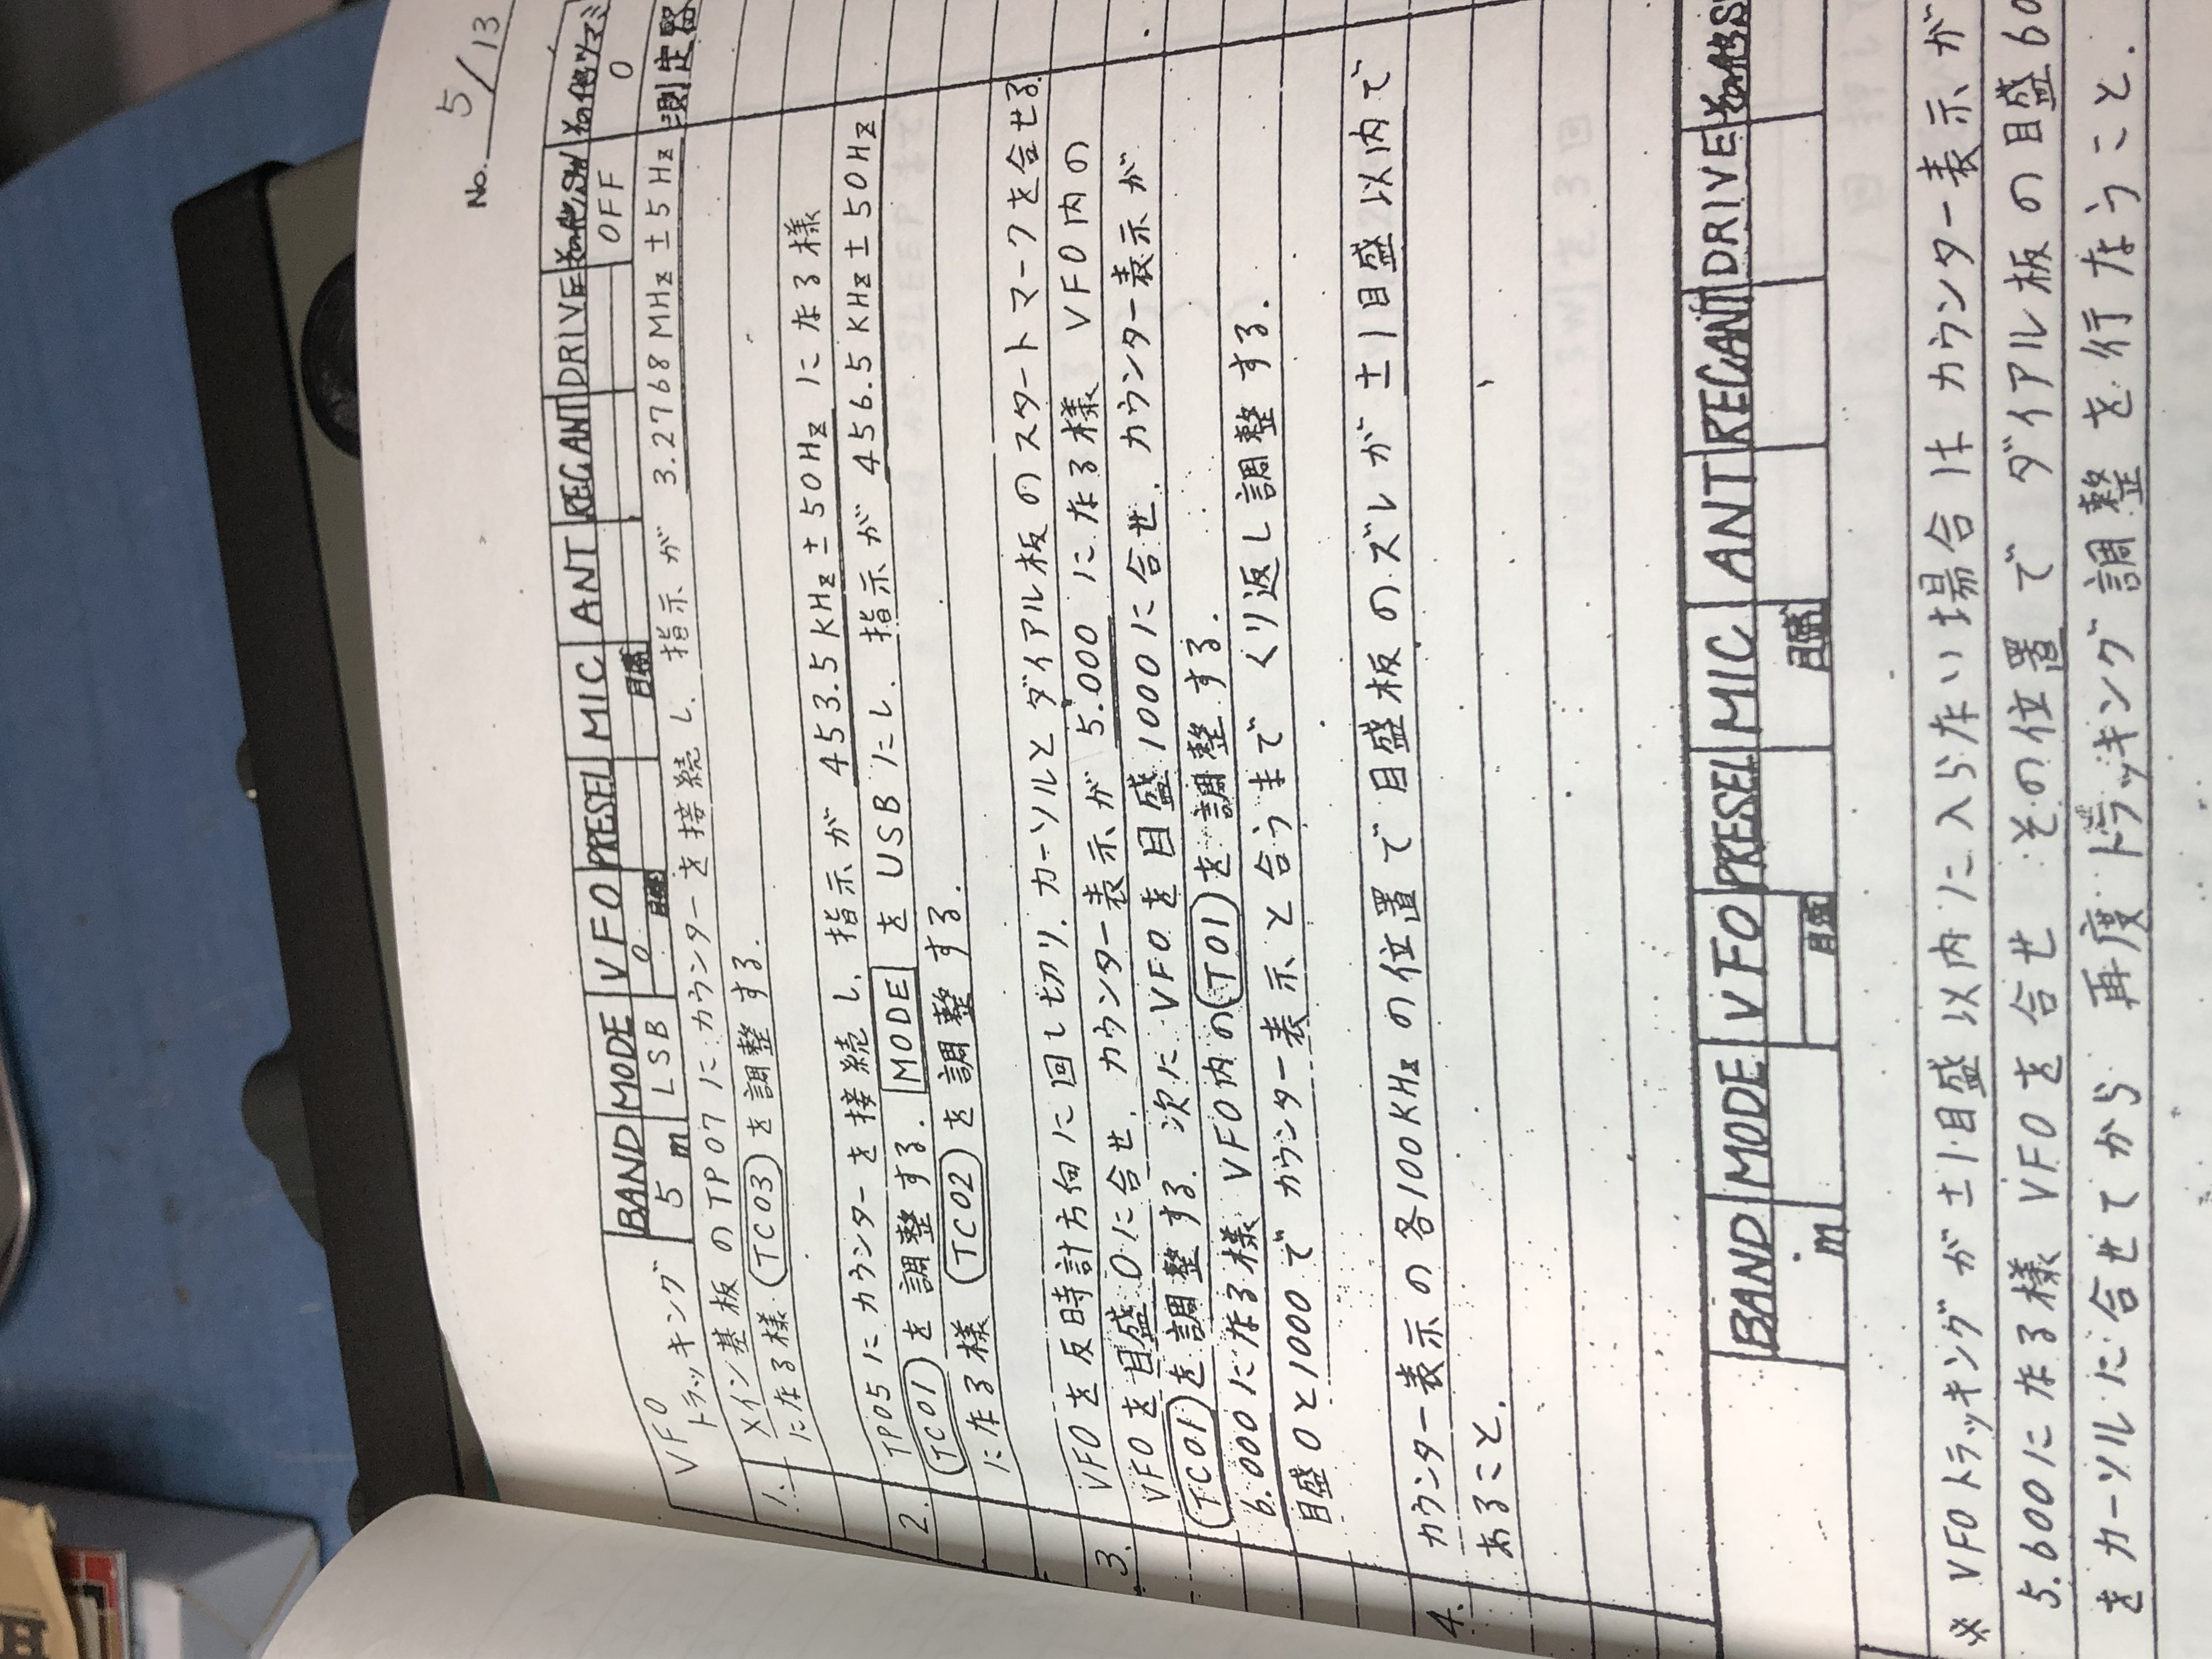 No. 5/13
VFO トラッキング
BAND MODE VFO PRESEL MIC ANT REC ANT DRIVE
5 m LSB 0 目盛 目盛 OFF 0
測定器
1. メイン基板のTP07にカウンターを接続し、指示が 3.2768MHz±5Hz
になる様 TC03 を調整する.
2. TP05にカウンターを接続し、指示が 453.5KHz±50Hz になる様
TC01 を調整する. MODE を USB にし、指示が 456.5KHz±50Hz
になる様 TC02 を調整する.
3. VFOを反時計方向に回し切り、カーソルとダイアル板のスタートマークを合せる.
VFOを目盛0に合せ、カウンター表示が 5.000 になる様 VFO内の
TC01 を調整する. 次に VFOを目盛1000に合せ、カウンター表示が
6.000になる様 VFO内の T01 を調整する.
目盛0と1000で カウンター表示と合うまで くり返し調整する.
4. カウンター表示の各100KHzの位置で目盛板のズレが ±1目盛以内で
あること.
BAND MODE VFO PRESEL MIC ANT REC ANT DRIVE
m 目盛 目盛
※ VFOトラッキングが±1目盛以内に入らない場合は カウンター表示が
5.600になる様 VFOを合せ その位置で ダイアル板の目盛60
をカーソルに合せてから 再度トラッキング調整を行なうこと.